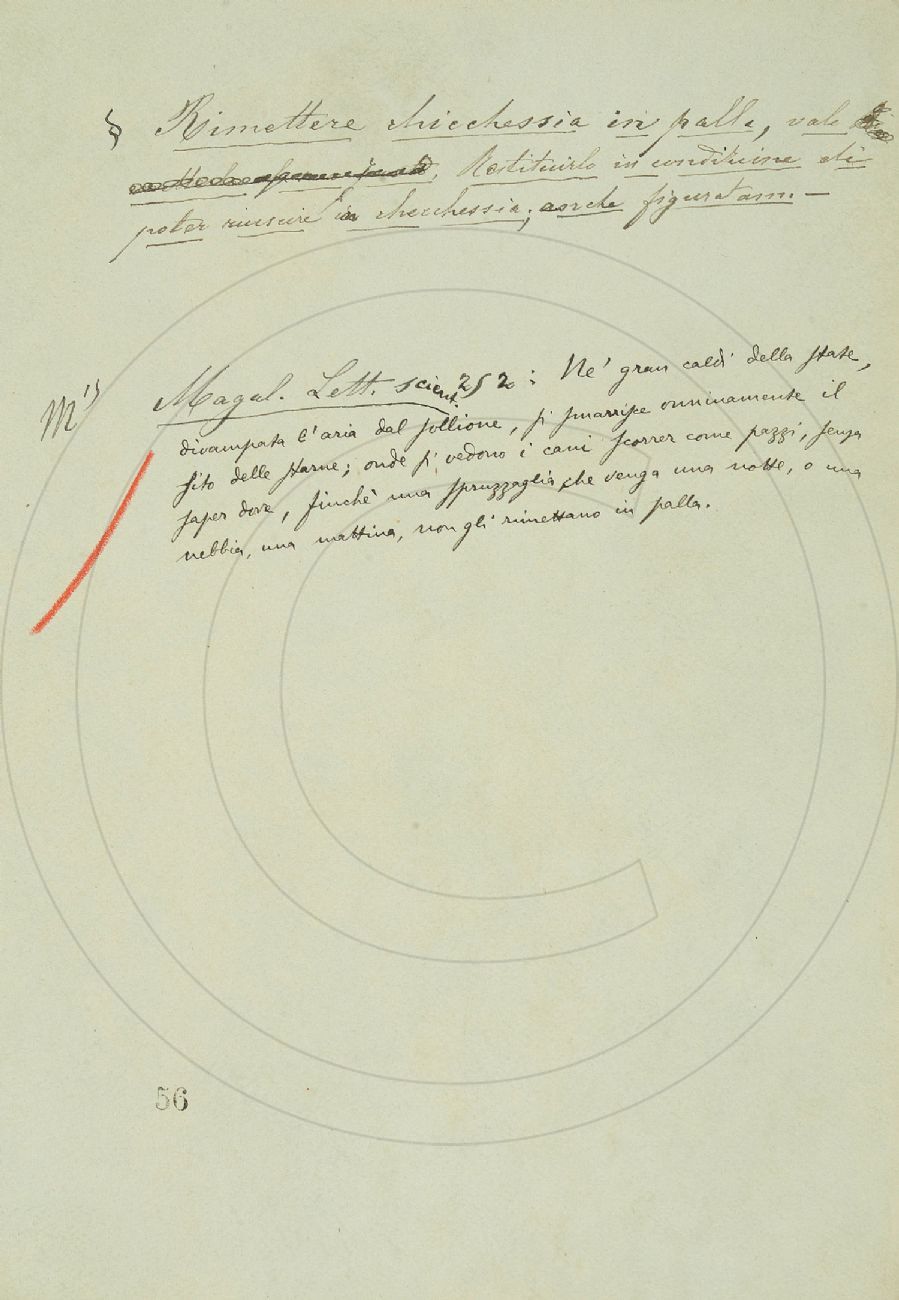 § Rimettere chicchessia in palla, vale
Restituirlo in condizione di
poter riuscire in checchessia, anche figuratam. —
Magal. Lett. scient. 252: Ne' gran caldi della state,
divampata l'aria dal sollione, si smarrisce onninamente il
sito delle starne; onde si vedono i cani scorrer come pazzi, senza
saper dove, finchè una spruzzaglia, che venga una notte, o una
nebbia, una mattina, non gli rimettano in palla.
56